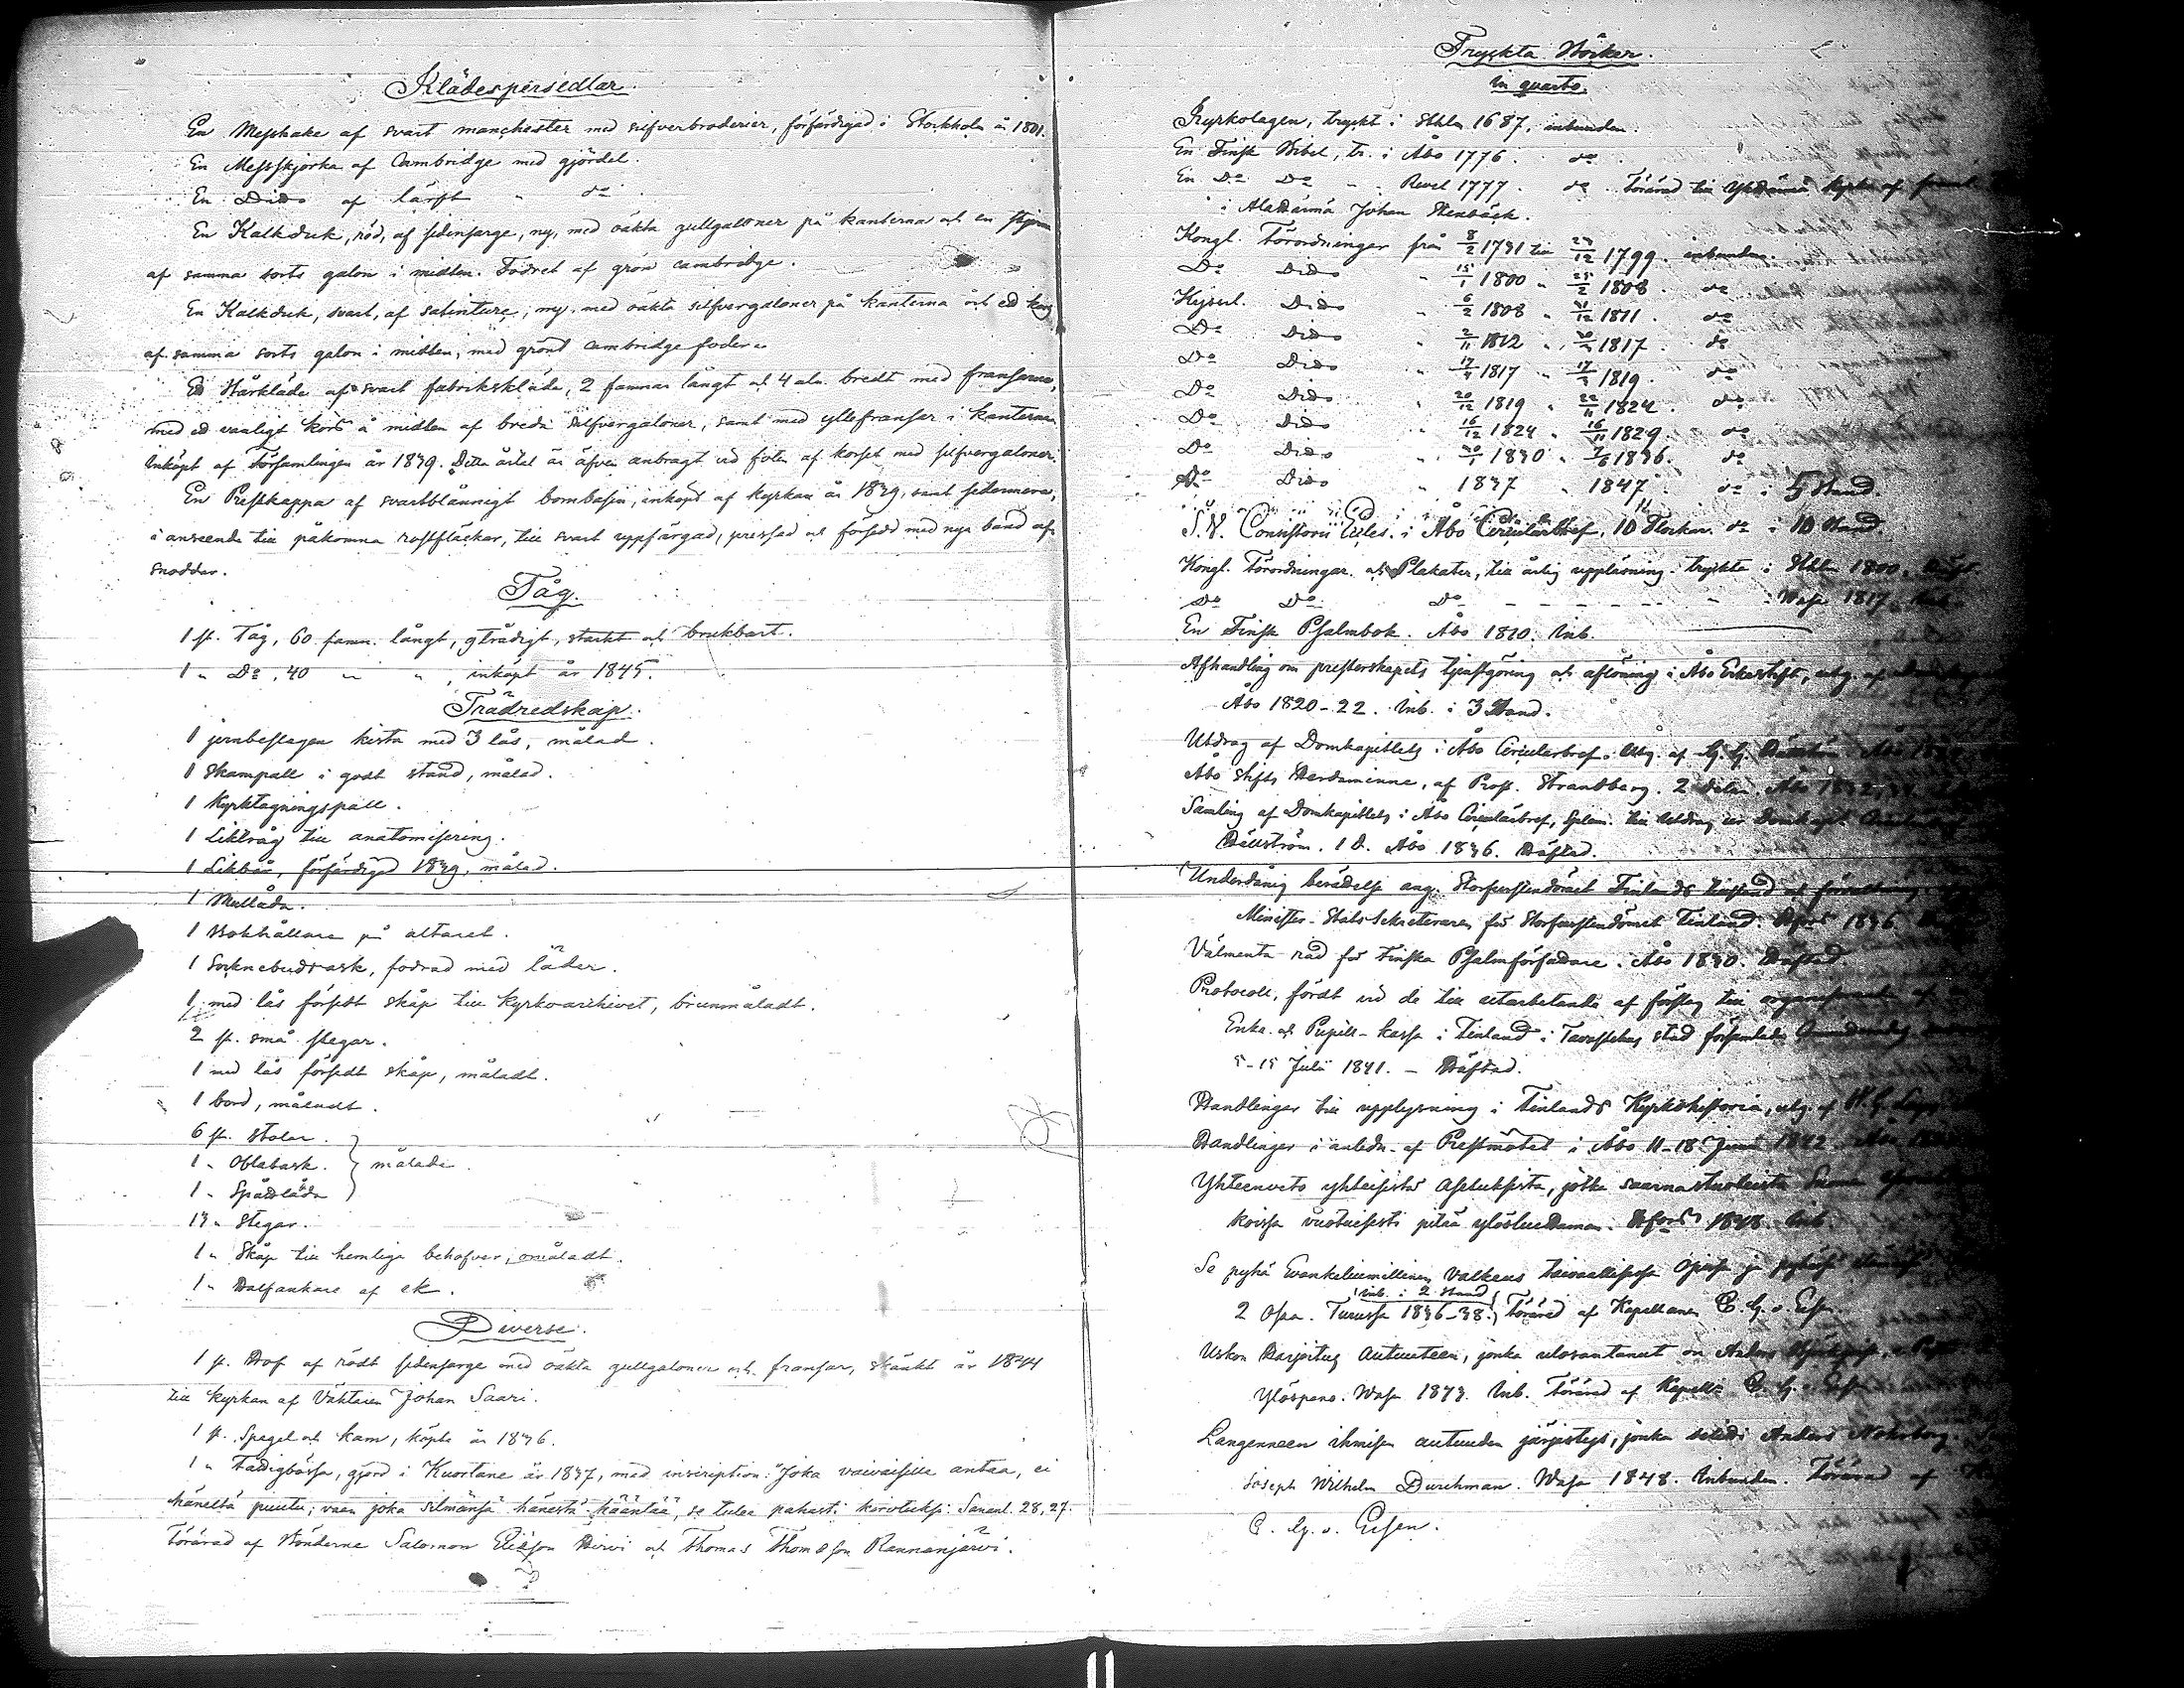 Klädespersedlar.
En Messhake af svart manchester med silfverbroderier, förfärdigad i Stockholm år 1801.
En Messskjorta af Cambridge med gjördel.
En Dido af lärft " do
En Kalkduk, röd, af sidensarge, ny, med oäkta gullgaloner på kanterna och en stjerna
af samma sorts galon i midten. Fodret af grön cambridge.
En Kalkduk, svart, af satinture, ny, med oäkta silfvergaloner på kanterna och ett kors
af samma sorts galon i midten, med grönt cambridge foder.
Ett Bårkläde af svart fabrikskläde, 2 famnar långt och 4 aln. bredt med fransarne,
med ett vanligt kors å midten af breda silfvergaloner, samt med yllefransar i kanterna.
Inköpt af Församlingen år 1839. Detta årtal är äfven anbragt vid foten af korset med silfvergaloner.
En Prestkappa af svartblånnigt bombasin, inköpt af kyrkan år 1839, samt sedermera,
i anseende till påkomna rostfläckar, till svart uppfärgad, pressad och försedd med nya band af
snoddar.
Tåg.
1 st. Tåg, 60 famn. långt, 9trådigt, starkt och brukbart.
1 " Do, 40 " " , inköpt år 1845.
Trädredskap.
1 jernbeslagen kista med 3 lås, målad.
1 Skampall i godt stånd, målad.
1 Kyrktagningspall.
1 Liktråg till anatomisering.
1 Likbår, förfärdigad 1839, målad.
1 Mullåda.
1 Bokhållare på altaret.
1 Socknebudsask, fodrad med läder.
1 med lås försedt skåp till kyrkoarchivet, brunmåladt.
2 st. små stegar.
1 med lås försedt skåp, måladt.
1 bord, måladt.
6 st. stolar.
1 " Oblatask. målade.
1 " Spåttlåda
13 " Stegar.
1 " Skåp till hemliga behofver, omåladt.
1 " Halfankare af ek.
Diverse.
1 st. Hof af rödt sidensarge med oäkta gullgaloner och fransar, skänkt år 1844
till kyrkan af Väktaren Johan Saari.
1 st. Spegel och kam, köpta år 1836.
1 " Fattigbössa, gjord i Kuortane år 1837, med inscription: "Joka vaivaisille antaa, ei
häneltä puutu; vaan joka silmänsä hänestä kääntää, se tulee pahasti kirotuksi. Sananl. 28, 27.
Förärad af Bönderne Salomon Eliasson Hirvi och Thomas Thomasson Rannanjärvi.
Tryckta Böcker.
in quarto.
Kyrkolagen, tryckt i Sthlm 1687, inbunden.
En Finsk Bibel, tr. i Åbo 1776. do
En Do Do " Revel 1777. do. Förärad till Ylihärmä kyrka af
i Alahärmä Johan Stenbäck.
Kongl. Förordningar från 8/2 1791 till 23/12 1799. inbundna.
Do Dido " 15/1 1800 " 25/2 1808. do
Kejserl. Dido " 6/2 1808 " 31/12 1811. do
Do Dido " 2/11 1812 " 1817. do
Do Dido " 17/4 1817 " 1819. do
Do Dido " 20/12 1819 " 22/11 1824. do
Do Dido " 16/12 1824 " 16/11 1829. do
Do Dido " 1830 " 7/6 1836. do
Do Dido " 1837 " 1847. do i 5 Band.
S. V. Consistorii Eccles. i Åbo Circulärbref, 10 Flockar. do i 10 Band.
Kongl. Förordningar och Plakater, till årlig uppläsning. tryckta i Sthlm 1800.
Do Do Do - - - - - Wasa 1817.
En Finsk Psalmbok. Åbo 1820. Inb.
Afhandling om presterskapets tjenstgöring och aflöning i Åbo Erkestift, utg. af
Åbo 1820-22. Inb. i 3 Band.
Utdrag af Domkapitlets i Åbo Circulärbref. Utg. af
Åbo Stifts Herdaminne, af Prof. Strandberg. 2 delar. Åbo
Samling af Domkapitlets i Åbo Circulärbref, till Utdrag
Hällström. 1 D. Åbo 1836. Häftad.
Underdånig berättelse ang. Storfurstendömet Finlands tillstånd och förvaltning
Minister-Stats-Sekreteraren för Storfurstendömet Finland. 1836
Välmenta råd för Finska Psalmförfattare. Åbo 1830. Häftad.
Protocoll, fördt vid de till utarbetande af förslag till organiserande af
Enke- och Pupill-kassa i Finland i Tavastehus stad församlade
5-15 Julii 1841. - Häftad.
Handlingar till upplysning i Finlands Kyrkohistoria, utg. af
Handlingar i anledn. af Prestmötet i Åbo 11-18 Juni 1842.
Yhteenveto yhteisistä Asetuksista, jotka saarnastuoleista
koissa vuotuisesti pitää ylösluettaman. 1848. Inb.
Se pyhä Evankeliumillinen Valkeus taivaallisessa Opissa ja
(inb. i 2 Band)
2 Osa. Turussa 1836-38. Förärad af Kapellanen C. G. v. Essen.
Uskon Harjoitus Autuuteen, jonka ulosantanut on Anders
Ylöspano. Wasa 1843. Inb. Förärad af Kapell. C. G. v. Essen
Langenneen ihmisen autuuden järjestys, jonka Anders Nohrborg.
Joseph Wilhelm Durchman. Wasa 1848. Inbunden. Förärad af
C. G. v. Essen.